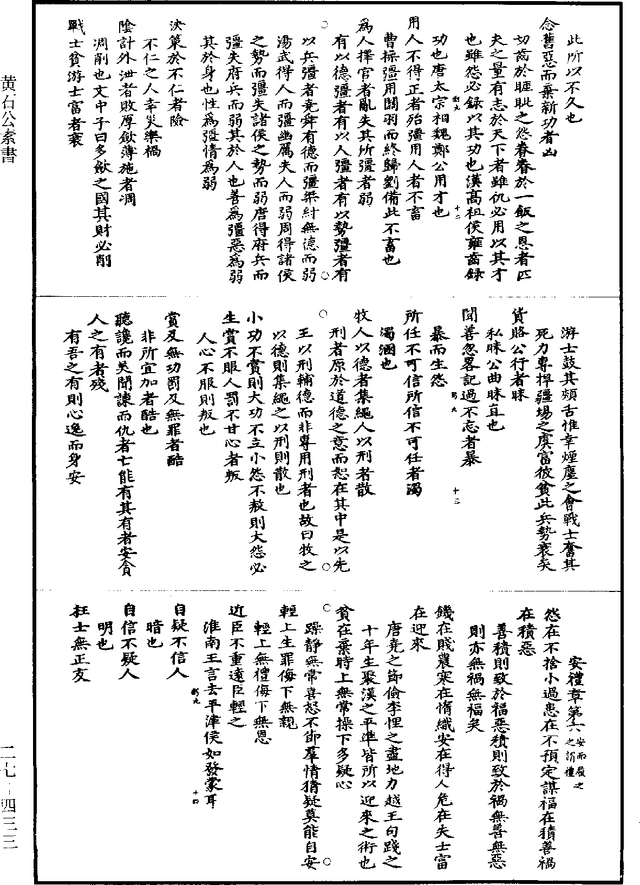 此所以不久也
念舊惡而棄新功者凶
切齒於睚眦之怨眷眷於一飯之恩者匹
夫之量有志於天下者雖仇必用以其才
也雖怨必録以其功也漢高祖侯雍齒録
功也唐太宗相魏鄭公用才也
十二
用人不得正者殆彊用人者不畜
曹操彊用關羽而終歸劉備此不畜也
為人擇官者亂失其所彊者弱
有以德彊者有以人彊者有以勢彊者有
以兵彊者堯舜有德而彊桀紂無德而弱
湯武得人而彊幽厲失人而弱周得諸侯
之勢而彊失諸侯之勢而弱唐得府兵而
彊失府兵而弱其於人也善為彊惡為弱
其於身也性為彊情為弱
決策於不仁者險
不仁之人幸災樂禍
陰計外泄者敗厚斂薄施者凋
凋削也文中子曰多斂之國其財必削
戰士貧游士富者衰
游士鼓其頰舌惟幸煙塵之會戰士奮其
死力專捍疆場之虞富彼貧此兵勢衰矣
貨賂公行者昧
私昧公曲昧直也
聞善忽畧記過不忘者暴
十三
暴而生怨
所任不可信所信不可任者濁
濁溷也
牧人以德者集繩人以刑者散
刑者原於道德之意而恕在其中是以先
王以刑輔德而非專用刑者也故曰牧之
以德則集繩之以刑則散也
小功不賞則大功不立小怨不赦則大怨必
生賞不服人罰不甘心者叛
人心不服則叛也
賞及無功罰及無罪者酷
非所宜加者酷也
聽讒而美聞諫而仇者亡能有其有者安貪
人之有者殘
有吾之有則心逸而身安
安禮章第六 安而履之之謂禮
怨在不捨小過患在不預定謀福在積善禍
在積惡
善積則致於福惡積則致於禍無善無惡
則亦無禍無福矣
饑在賤農寒在惰織安在得人危在失士富
在迎來
唐堯之節儉李悝之盡地力越王句踐之
十年生聚漢之平準皆所以迎來之術也
貧在棄時上無常操下多疑心
躁靜無常喜怒不節羣情猜疑莫能自安
輕上生罪侮下無親
輕上無禮侮下無恩
近臣不重遠臣輕之
淮南王言去平津侯如發蒙耳
十四
自疑不信人
暗也
自信不疑人
明也
枉士無正友
黃石公素書
二七－四三三